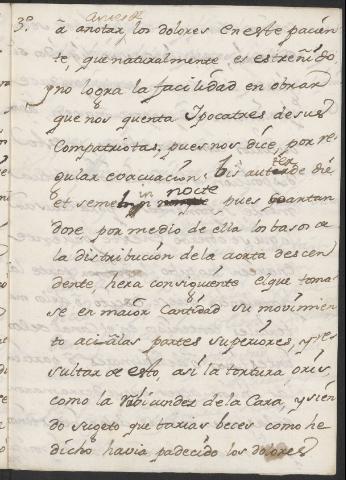 3º
a anotar los dolores en este pacien
te, que naturalmente es estreñido,
y no logra la facilidad en obrar
que nos quenta Ypocatres de sus
Compatriotas, pues nos dice, por re
gular evacuacion: bis aut ter de die
et semel in nocte pues coartan
dose por medio de ella los basos de
la distribución de la aorta descen
dente, hera consiguiente el que toma
se en maior Cantidad su movimien
to acia las partes superiores, y re
sultar de esto, así la tortura oris,
como la rubicundez de la Cara, y sien
do sugeto que barias beces como he
dicho havia padecido los dolores